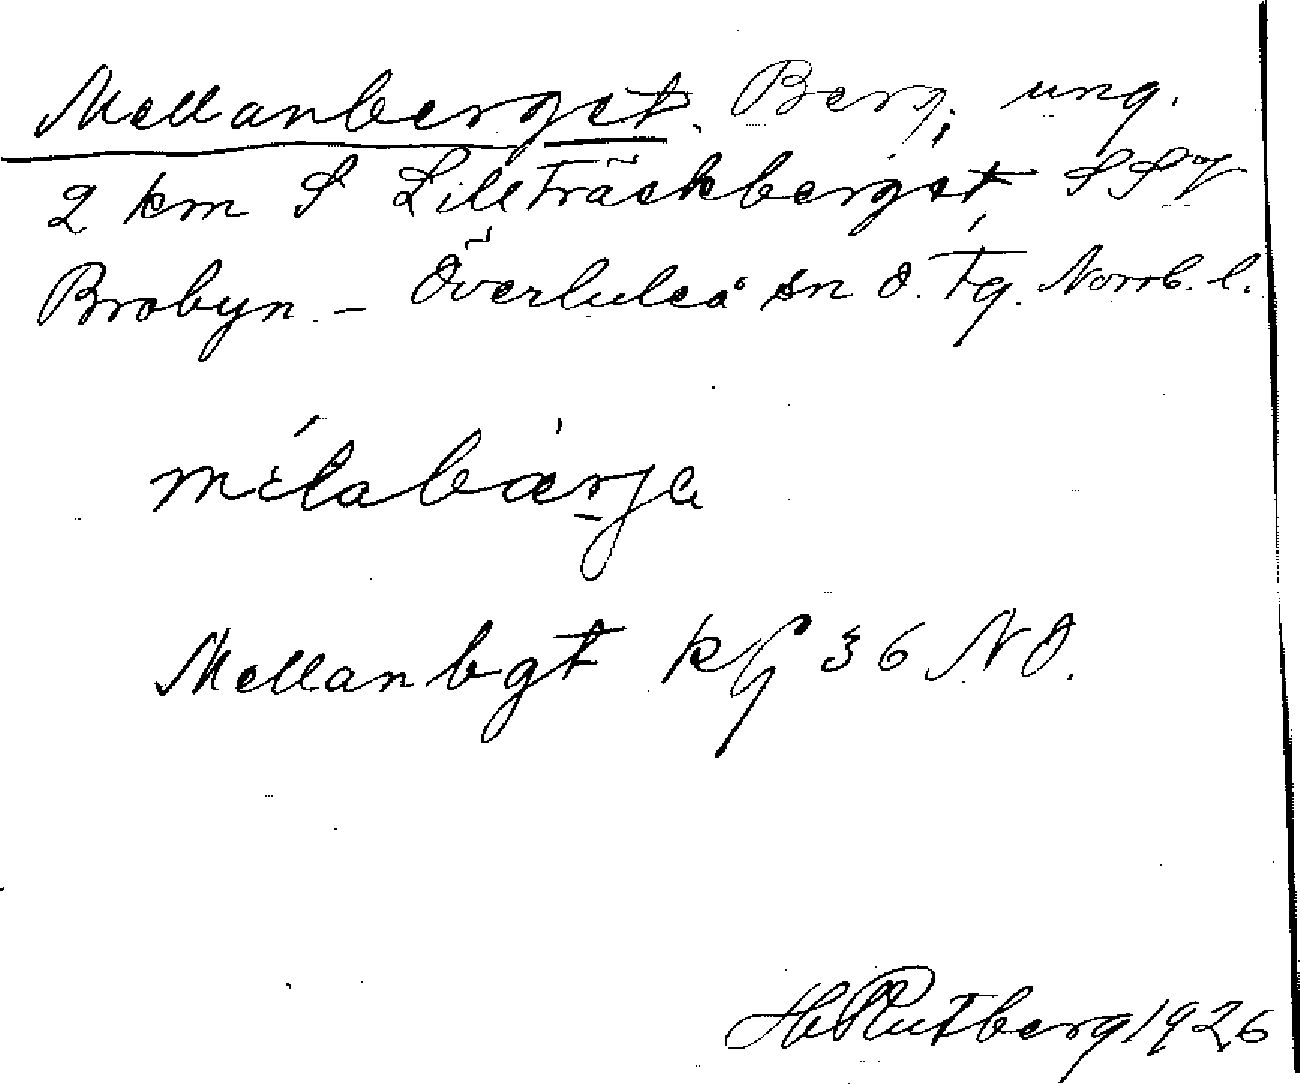 Mellanberget. Berg, ung.
2 km S Lillträskberget SSV
Brobyn. – Överluleå sn Ö. tg. Norrb. l.
mélabærja
Mellanbgt kf 36 NO.
H. Rutberg 1926